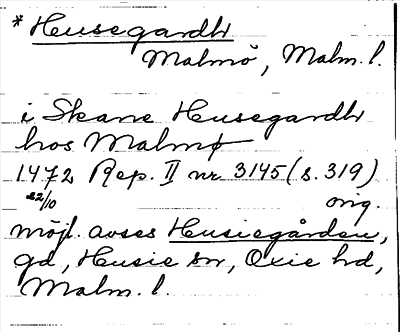 * Husegardh
Malmö, Malm. l.
i Skane Husegardh
hos Malmø
1472 Rep. II nr 3145 (s. 319)
22/10 orig.
möjl. avses Husiegården,
gd, Husie sn, Oxie hd,
Malm. l.